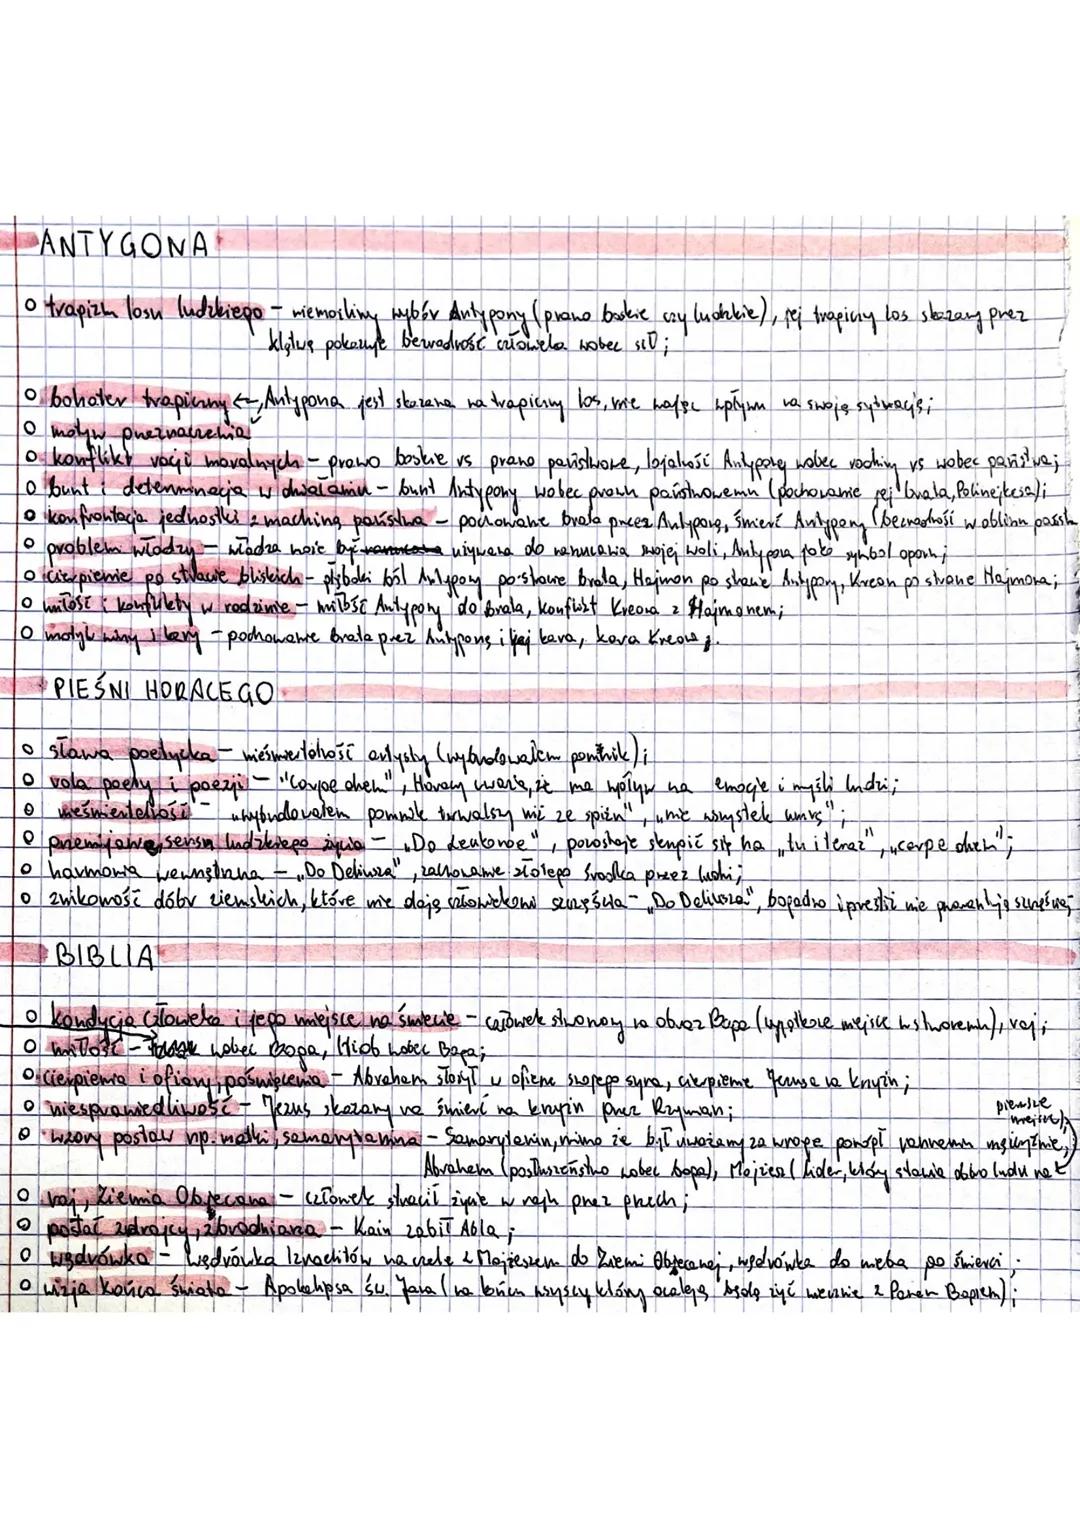 ANTYGONA
o tragizm losu ludzkiego – niemożliwy wybór Antygony (prawo boskie czy ludzkie), jej tragiczny los skazany przez
klątwę pokazuje bezradność człowieka wobec sił;
o bohater tragiczny ← Antygona jest skazana na tragiczny los, nie mając wpływu na swoją sytuację;
o motyw przeznaczenia
o konflikt racji moralnych – prawo boskie vs prawo państwowe, lojalność Antygony wobec rodziny vs wobec państwa;
o bunt i determinacja w działaniu – bunt Antygony wobec prawu państwowemu (pochowanie jej brata, Polinejkesa);
o konfrontacja jednostki z machiną państwa – pochowanie brata przez Antygonę, śmierć Antygony (bezradność w obliczu państwa
o problem władzy – władza może być używana do narzucania swojej woli, Antygona jako symbol oporu;
o cierpienie po stracie bliskich – głęboki ból Antygony po stracie brata, Hajmon po stracie Antygony, Kreon po stracie Hajmona;
o miłość i konflikty w rodzinie – miłość Antygony do brata, konflikt Kreona z Hajmonem;
o motyw winy i kary – pochowanie brata przez Antygonę i jej kara, kara Kreona;
PIEŚNI HORACEGO
o sława poetycka – nieśmiertelność artysty (wybudowałem pomnik);
o rola poety i poezji – "Carpe diem", Horacy uważa, że ma wpływ na emocje i myśli ludzi;
o nieśmiertelność – „wybudowałem pomnik trwalszy niż ze spiżu", „nie wszystek umrę";
o przemijanie, sens ludzkiego życia – „Do Leukonoe", pozostaje skupić się na „tu i teraz", „carpe diem";
o harmonia wewnętrzna – „Do Deliusza", zachowanie złotego środka przez ludzi;
o znikomość dóbr ziemskich, które nie dają człowiekowi szczęścia – „Do Deliusza", bogactwo i prestiż nie gwarantują szczęścia;
BIBLIA
o kondycja człowieka i jego miejsce na świecie – człowiek stworzony na obraz Boga (wyjątkowe miejsce w stworzeniu), raj;
o miłość – wobec Boga, Hiob wobec Boga;
o cierpienia i ofiary, poświęcenia – Abraham złożył w ofierze swojego syna, cierpienie Jezusa na krzyżu;
o niesprawiedliwość – Jezus skazany na śmierć na krzyżu przez Rzymian;
o wzory postaw np. matki, samarytanina – Samarytanin, mimo że był uważany za wroga pomógł rannemu mężczyźnie,
Abraham (posłuszeństwo wobec boga), Mojżesz (lider, który stawia dobro ludu na
pierwsze
miejsce);
o raj, Ziemia Obiecana – człowiek stracił życie w raju przez grzech;
o postać zdrajcy, zbrodniarza – Kain zabił Abla;
o wędrówka – wędrówka Izraelitów na czele z Mojżeszem do Ziemi Obiecanej, wędrówka do nieba po śmierci;
o wizja końca świata – Apokalipsa św. Jana (na końcu wszyscy którzy ocaleją będą żyć wiecznie z Panem Bogiem);